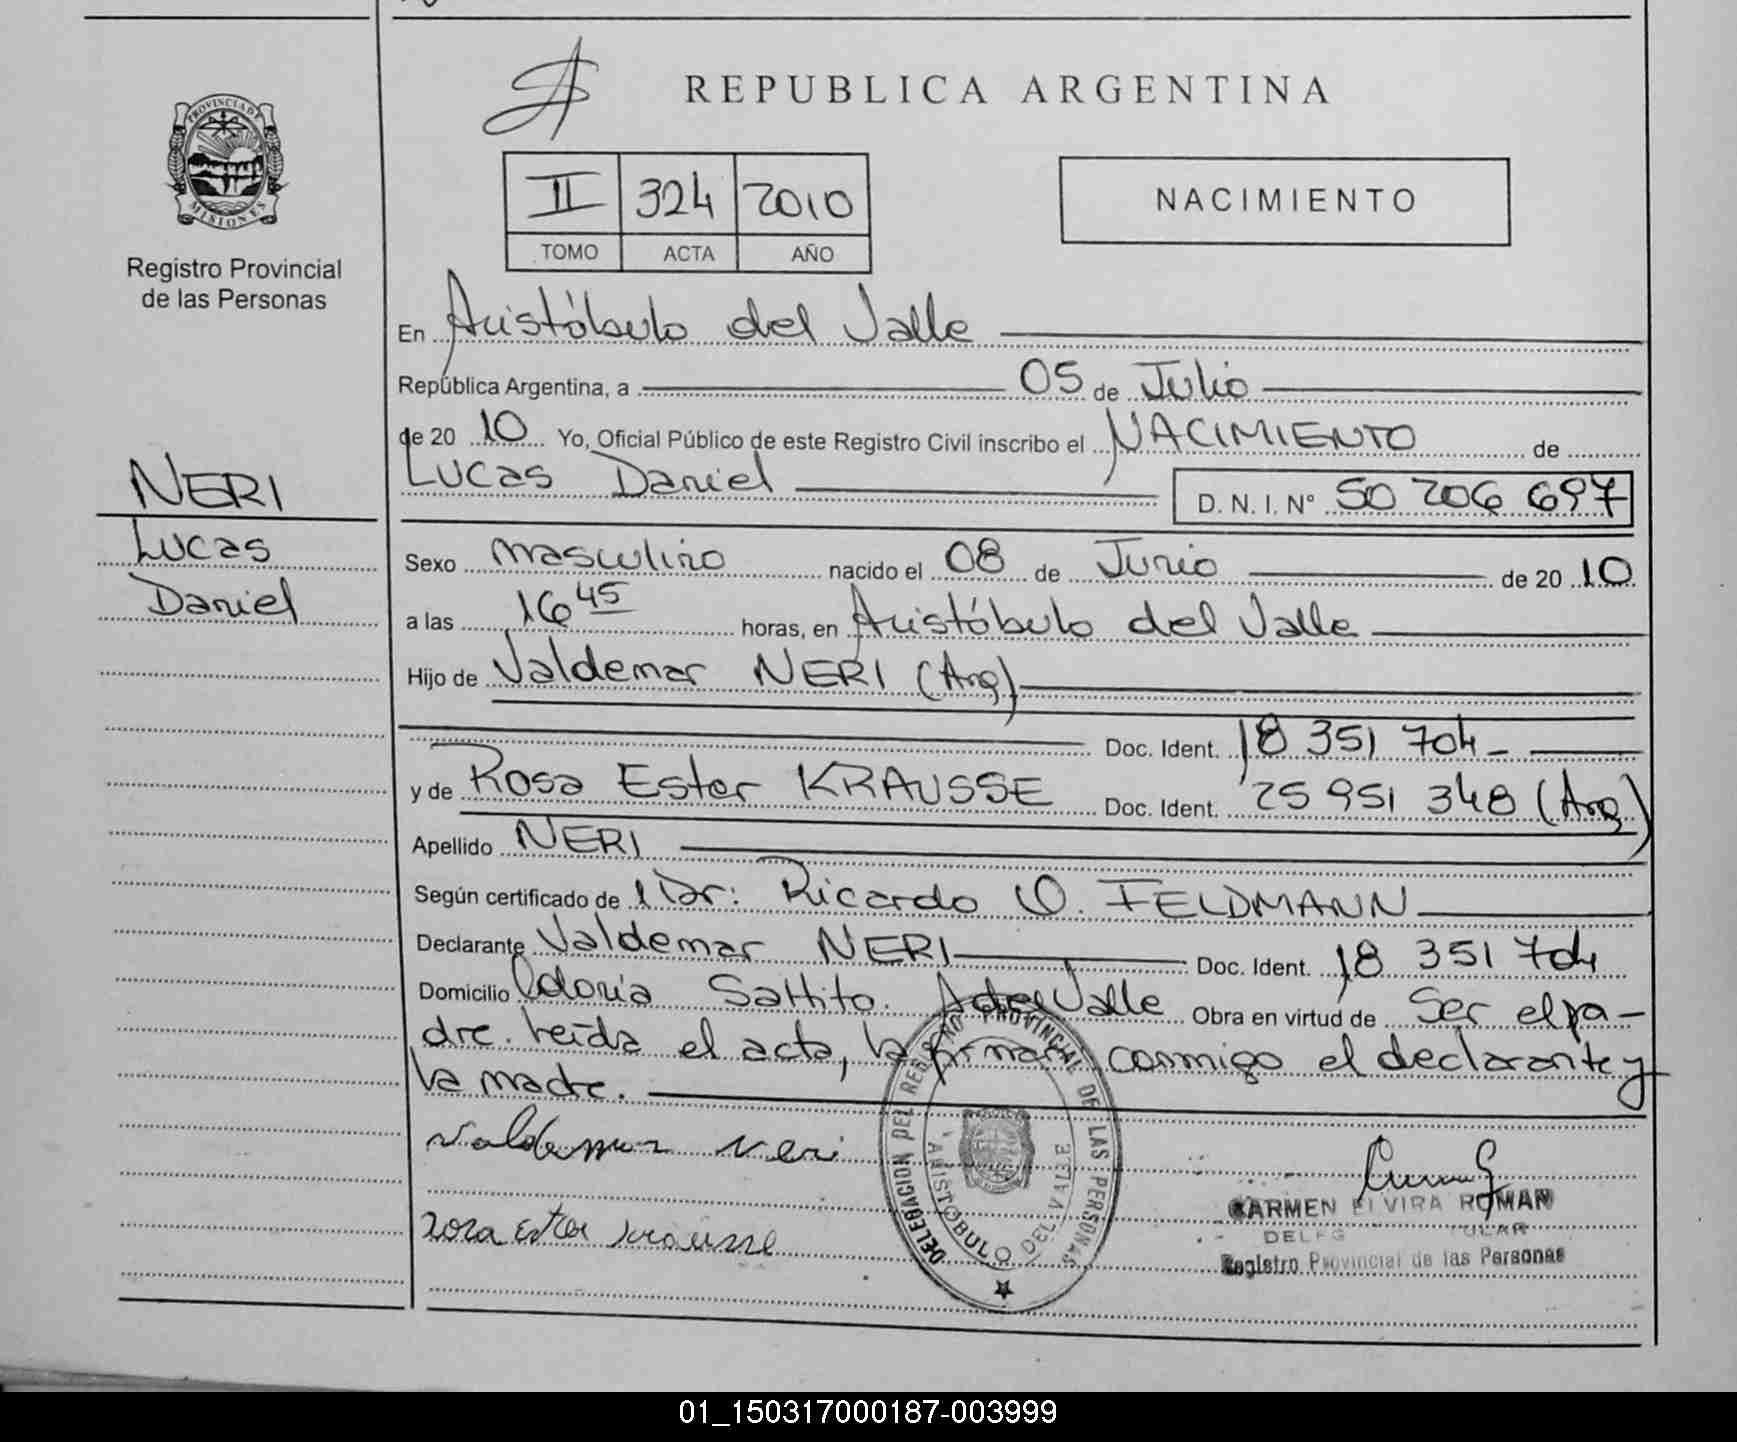 REPUBLICA ARGENTINA
PROVINCIA DE
MISIONES
Registro Provincial
de las Personas
II 324 2010
TOMO ACTA AÑO
NACIMIENTO
En Aristóbulo del Valle
República Argentina, a 05 de Julio
de 20 10 Yo, Oficial Público de este Registro Civil inscribo el NACIMIENTO de
Lucas Daniel D. N. I. N° 50 206 697
NERI
Lucas
Daniel
Sexo Masculino nacido el 08 de Junio de 20 10
a las 16 45 horas, en Aristóbulo del Valle
Hijo de Valdemar NERI (Arg)
Doc. Ident. 18 351 704
y de Rosa Ester KRAUSSE Doc. Ident. 25 951 348 (Arg)
Apellido NERI
Según certificado de Dr: Ricardo O. FELDMANN
Declarante Valdemar NERI Doc. Ident. 18 351 704
Domicilio Colonia Saltito. A del Valle Obra en virtud de Ser el pa-
dre. Leída el acta, la firman conmigo el declarante y
la madre.
Valdemar Neri
rosa Ester krausse
DELEGACION DEL REGISTRO PROVINCIAL DE LAS PERSONAS
ARISTOBULO DEL VALLE
CARMEN ELVIRA ROMAN
Registro Provincial de las Personas
01_150317000187-003999